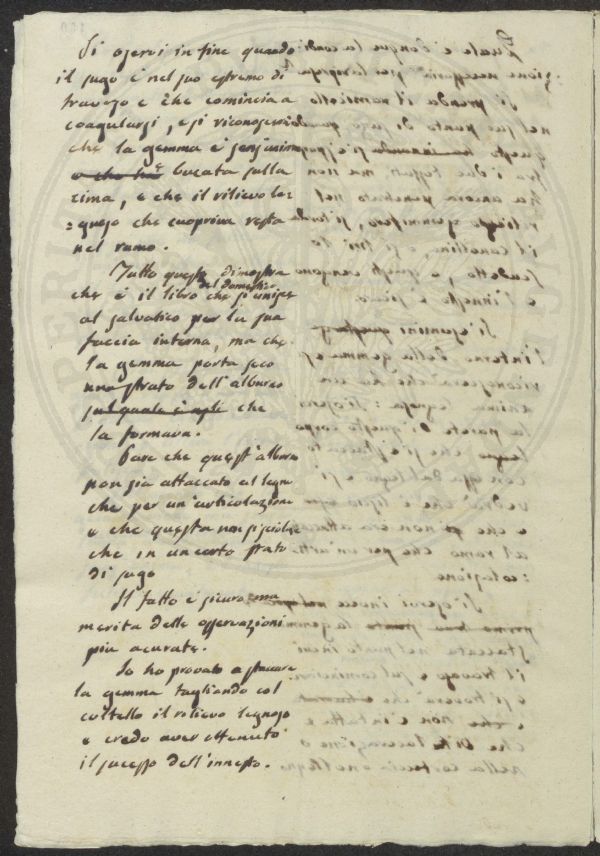 Si osservi in fine quando
il sugo è nel suo estremo di
travaso e che comincia a
coagularsi, e si riconoscerà
che la gemma è senz'anima
o che ha bucata sulla
cima, e che il rilievo le=
=gnoso che cuopriva resta
nel ramo.
Tutto questo dimostra
che è il libro che si unisce
del domestico
al salvatico per la sua
faccia interna, ma che
la gemma porta seco
uno strato dell'alburno
sul quale è che
la formava.
Pare che quest'alburno
non sia attaccato al legno
che per un'articolazione
e che questa non si scioglie
che in un certo stato
di sugo
Il fatto è sicuro ma
merita delle osservazioni
più acurate.
Io ho provato a staccare
la gemma tagliando col
coltello il rilievo legnoso
e credo aver ottenuto
il sucesso dell'innesto.